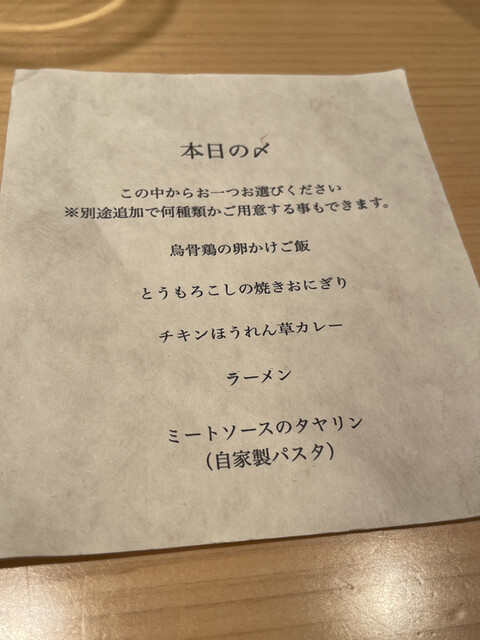 本日の〆
この中からお一つお選びください
※別途追加で何種類かご用意する事もできます。
烏骨鶏の卵かけご飯
とうもろこしの焼きおにぎり
チキンほうれん草カレー
ラーメン
ミートソースのタヤリン
(自家製パスタ)